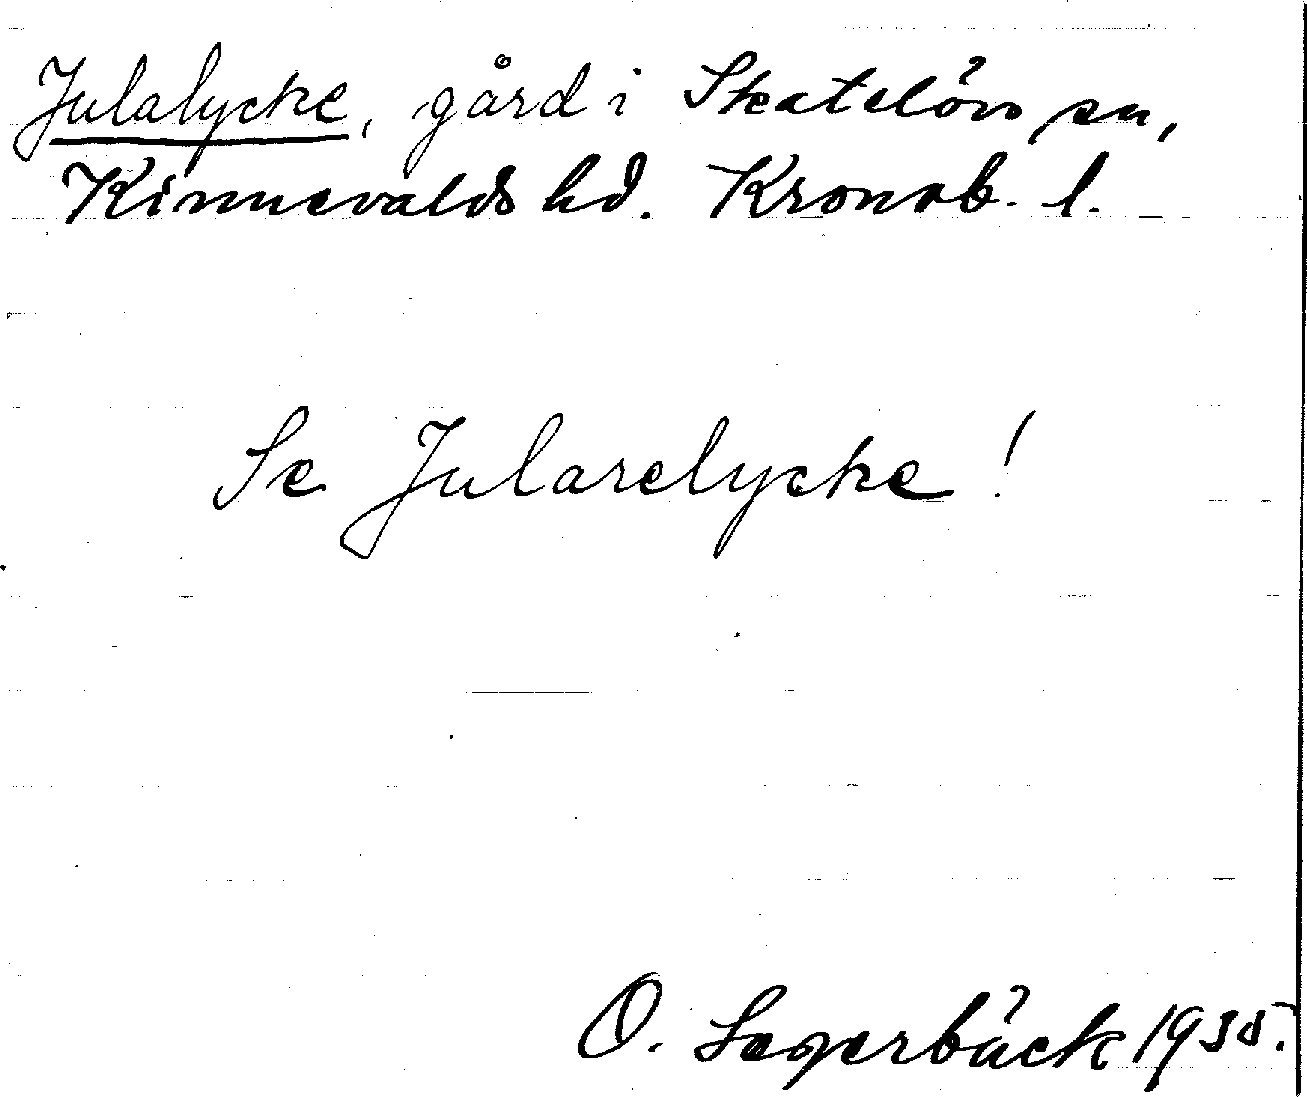 Julalycke, gård i Skatelöv sn,
Kinnevalds hd. Kronob. l.
Se Jularelycke!
O. Lagerbäck 1935.